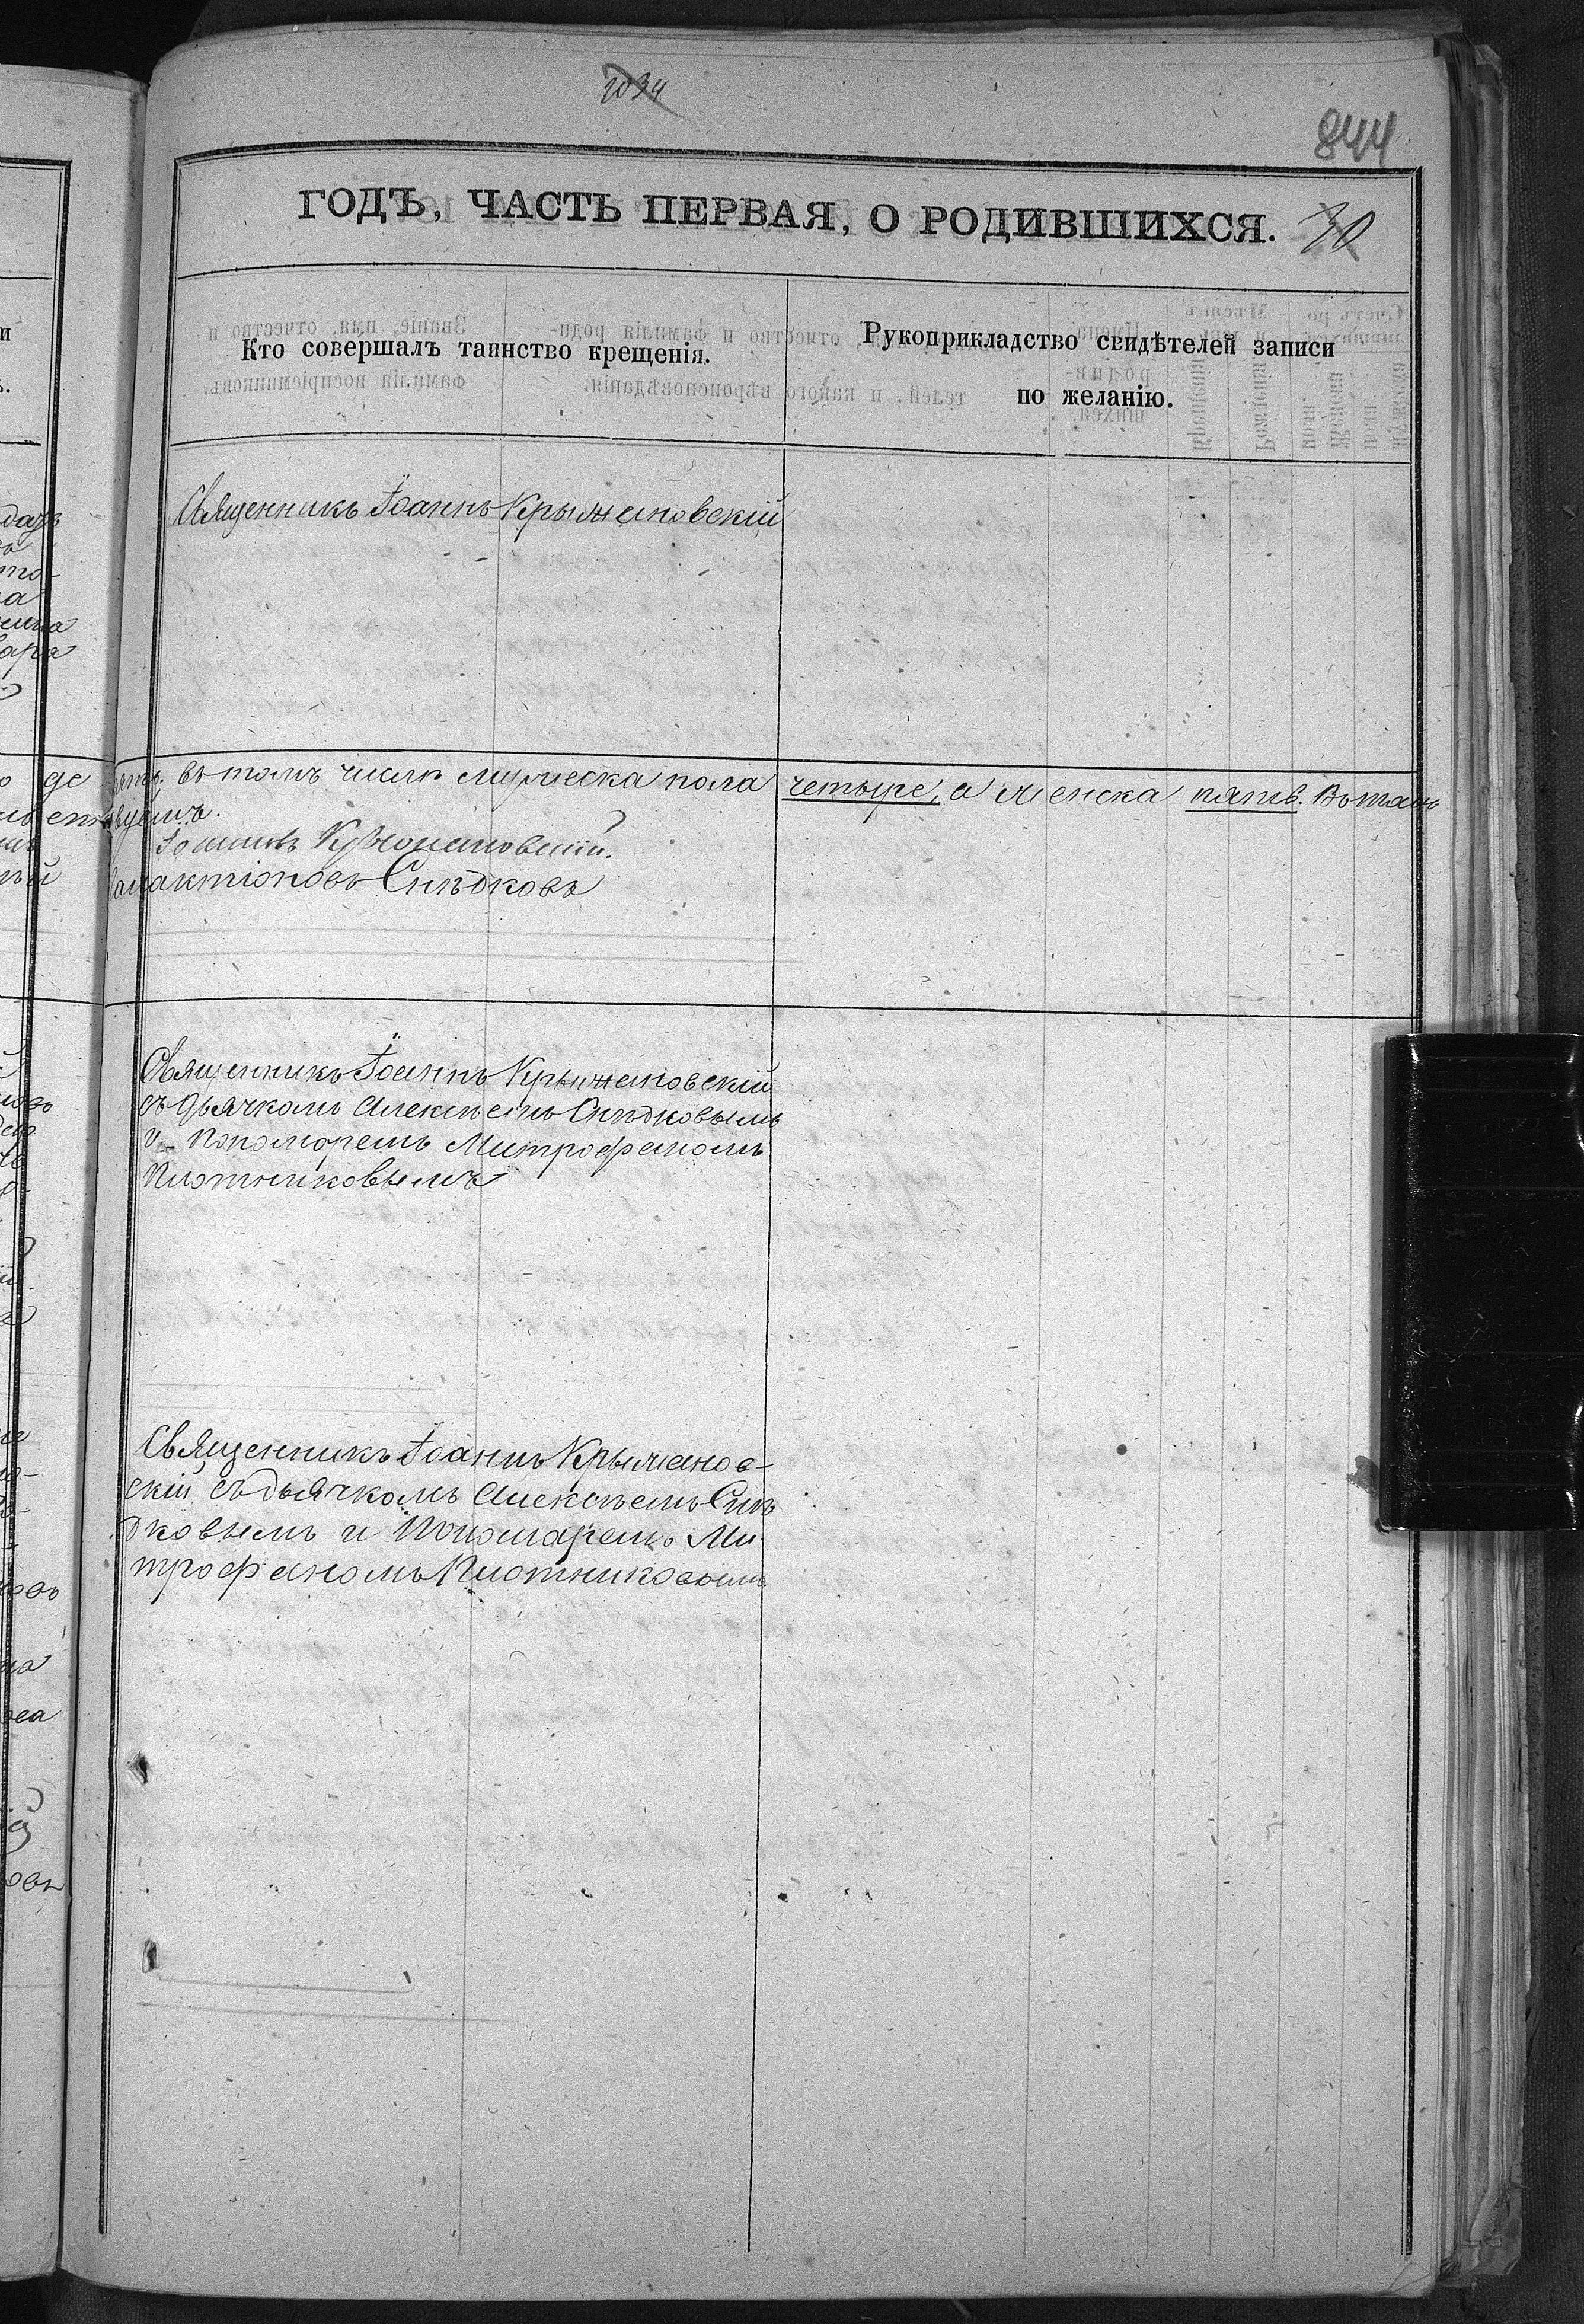 1034
844
ГОДЪ, ЧАСТЬ ПЕРВАЯ, О РОДИВШИХСЯ. 30
Кто совершалъ таинство крещенія.
Рукоприкладство свидѣтелей записи
по желанію.
Священникъ Іоаннъ Крыжановскій
въ томъ числѣ мужеска пола четыре, а женска пять. Въ томъ
Іоаннъ Крыжановскій.
Галактіоновъ Снѣдковъ
Священникъ Іоаннъ Крыжановскій
съ дьячкомъ Алексѣемъ Снѣдковымъ
и пономоремъ Митрофаномъ
Плотниковымъ
Священникъ Іоаннъ Крыжанов-
скій съ дьячкомъ Алексѣемъ Снѣ
дковымъ и Пономаремъ Ми-
трофаномъ Плотниковымъ